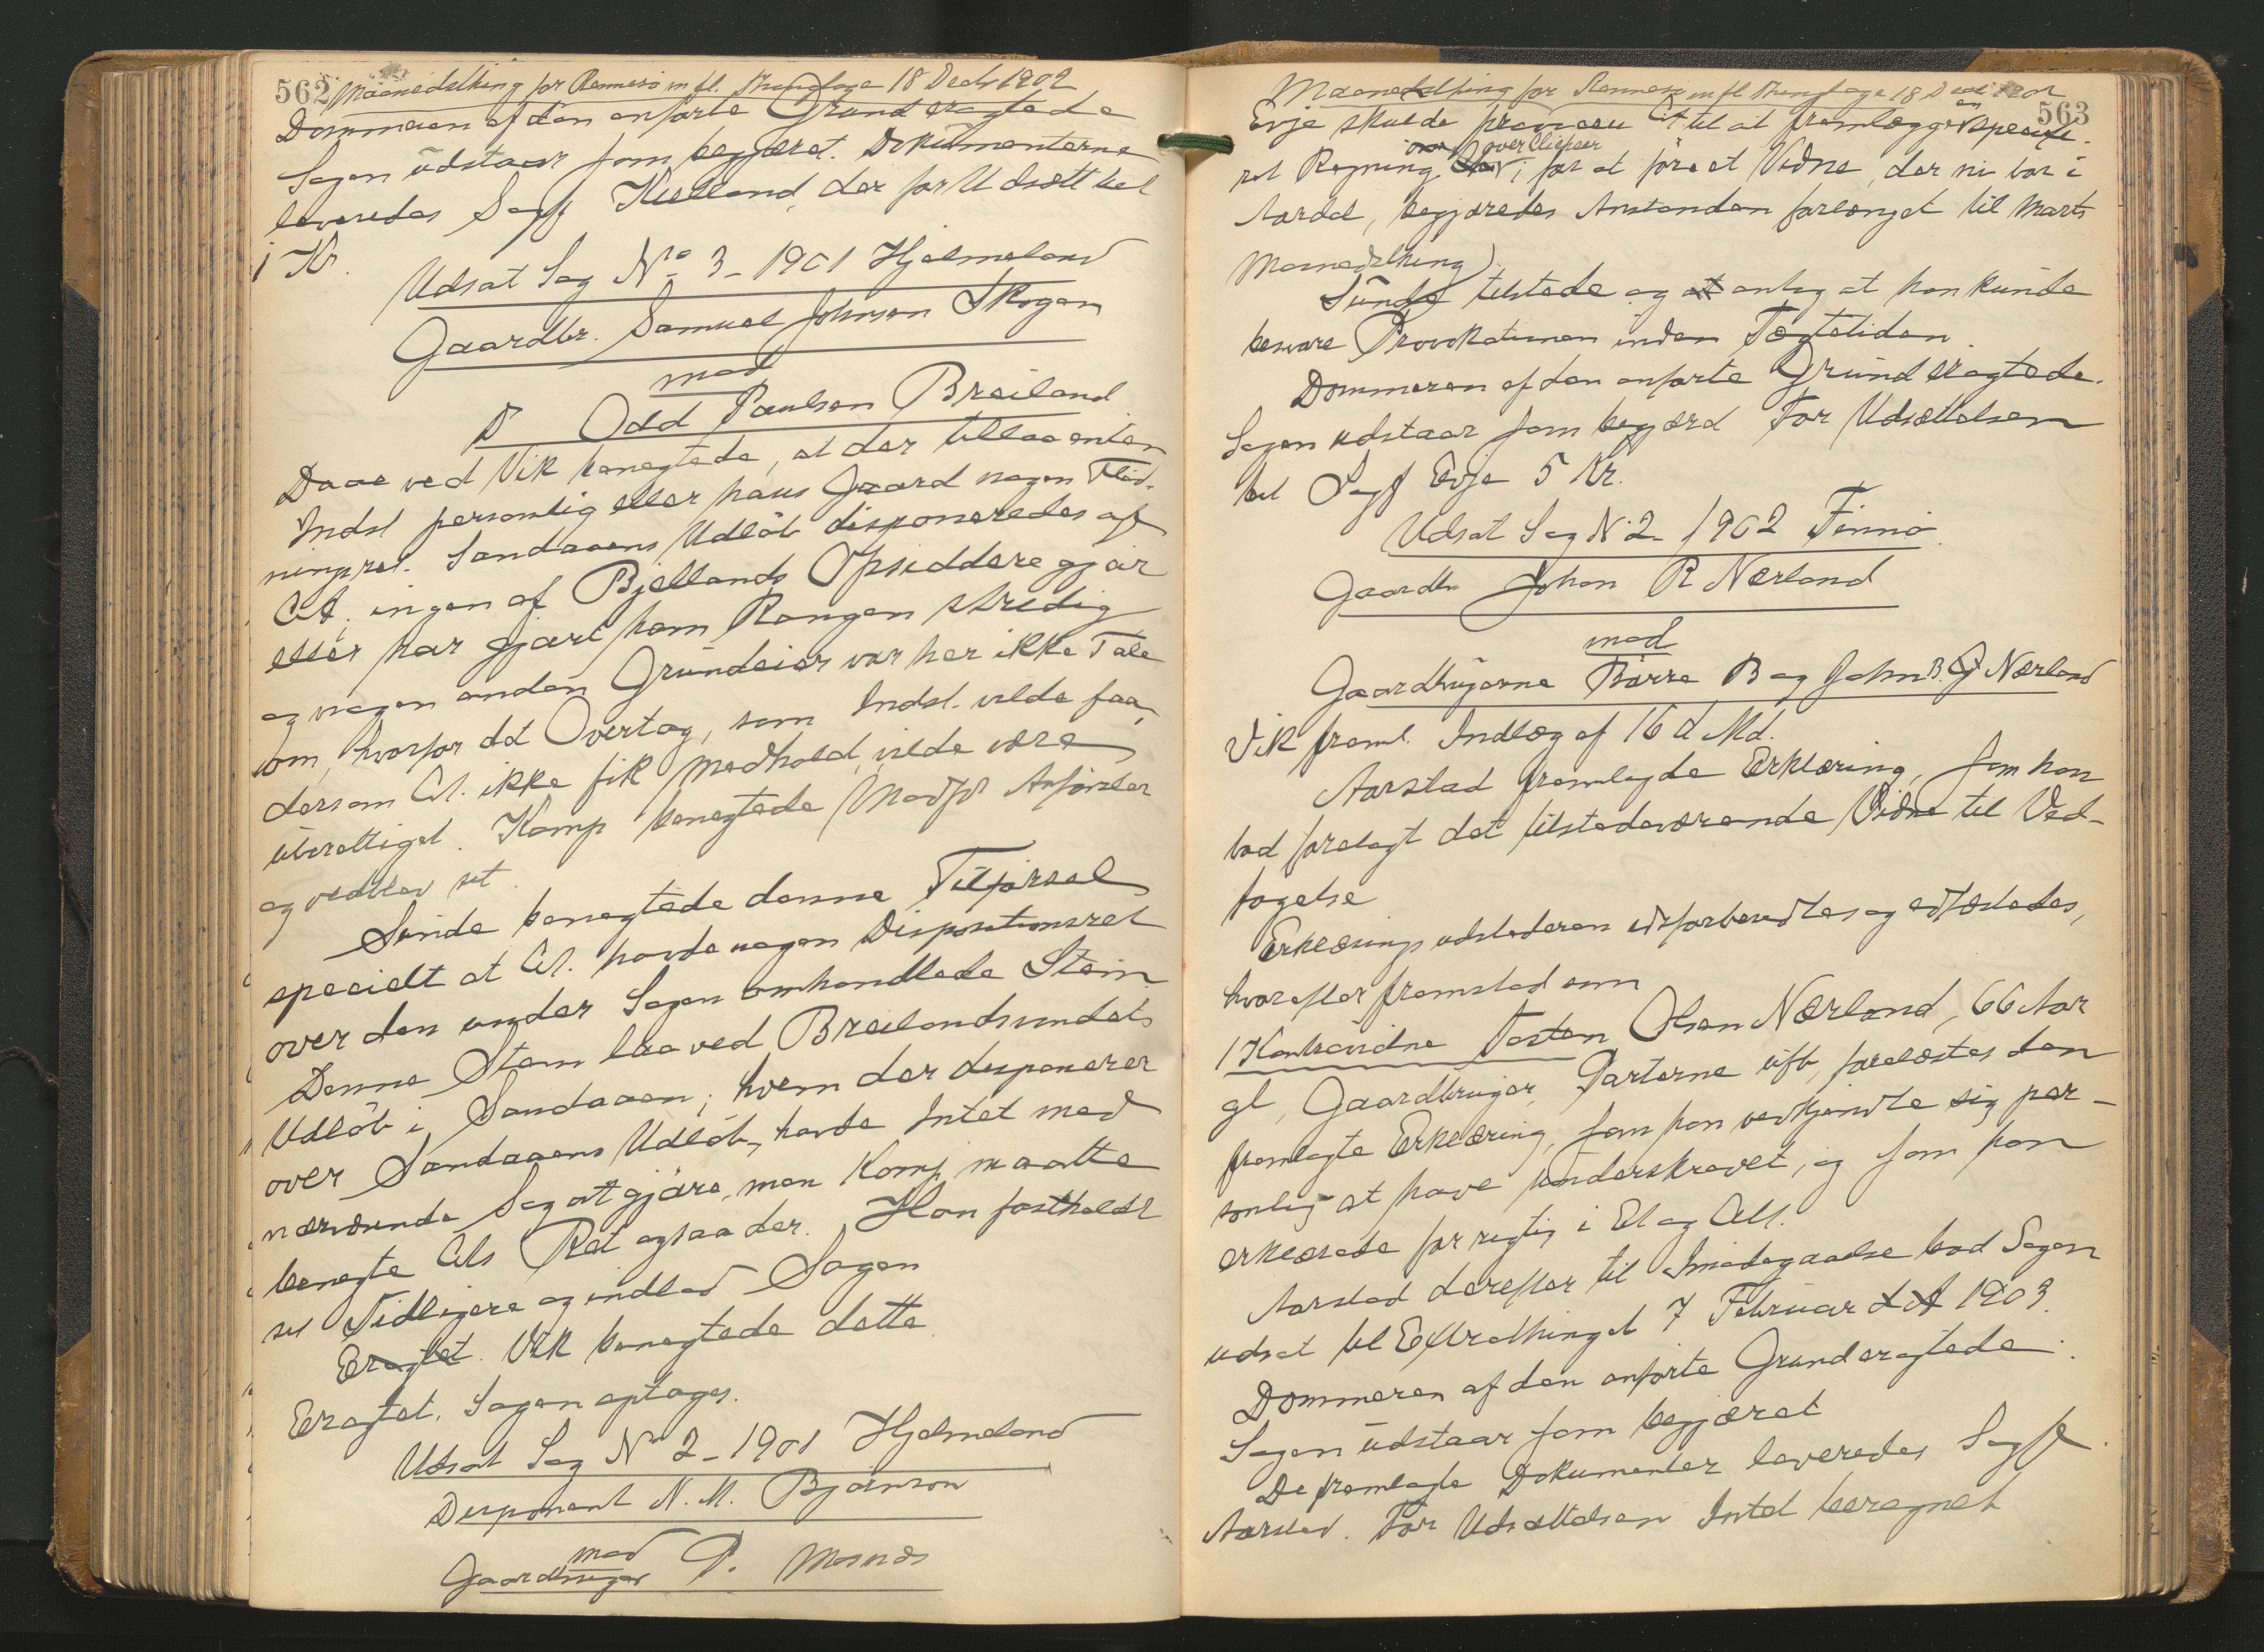 562 Maanedsthing for Rennesø m fl. Thinglage 18 Decb 1902
Dommeren af den anførte Grund eragtede
Sagen udstaar som begjæret. Dokumenterne
leveredes Sagf Kielland, der for Udsætt bet
1 Kr.
Udsat Sag No 3 - 1901 Hjelmeland
Gaardbr. Samuel Johnson Skogen
mod
D Odd Paulsen Breiland
Daae ved Vik benegtede, at der tillaa enten
Indst personlig eller hans Gaard nogen Flød-
ningsret. Sandaaens Udløb disponeredes af
Cit. ingen af Bjellands Opsiddere gjør
eller har gjort ham Rangen stredig
og nogen anden Grundeier var her ikke Tale
om, hvorfor det Overtag, som Indst. vilde faa,
dersom Cit. ikke fik Medhold, vilde være
uberettiget. Komp benegtede Modp's Anførsler
og vedblev sit.
Sunde benegtede denne Tilførsel
specielt at Cit. havde nogen Dispositionsret
over den under Sagen omhandlede Stem
Denne Stem laa ved Breilandsvandets
Udløb i Sandaaen; hvem der disponerer
over Sandaaens Udløb, havde Intet med
nærværende Sag at gjøre, men Komp maatte
benegte Cits Ret ogsaa der. Han fastholdt
sit Tidligere og indlod Sagen
Eragtet. Vik benegtede dette
Eragtet. Sagen optages.
Udsat Sag No 2 - 1901 Hjelmeland
Disponent N. M. Bjørnson
mod
Gaardbruger P. Mosnes
Maanedsthing for Rennesø m fl Thinglage 18 Decb 1902
563
Evje skulde provocere Cit til at fremlægge en specifi-
ret Regning over, for at føre et Vidne, der nu bor i
Aardal, begjæredes Anstanden forlænget til Marts
Maanedsthing.
Sunde tilstede og antog at han kunde
besvare Provokationen inden Tægtetiden.
Dommeren af den anførte Grund eragtede.
Sagen udstaar som begjært For Udsættelsen
bet Sagf Evje 5 Kr.
Udsat Sag No 2 - 1902 Finnø
Gaardbr Johan R Nærland
mod
Gaardbrugerne Børre B og John B. Nærland
Vik freml. Indlæg af 16 d Md.
Aarstad fremlagde Erklæring, som han
bad forelagt det tilstedeværende Vidne til Ved-
tagelse
Erklæringsudstederen edsforberedtes og edfæstedes,
hvorefter fremstod som
1 Kontravidne Tosten Olsen Nærland, 66 Aar
gl, Gaardbruger, Parterne ubsl, forelæstes den
fremlagte Erklæring, som han vedkjendte sig per-
sonlig at have underskrevet, og som han
erklærede for rigtig i Et og Alt.
Aarstad derefter til Imødegaaelse bad Sagen
udsat til Extrathinget 7 Februar 1903.
Dommeren af den anførte Grund eragtede.
Sagen udstaar som begjæret
De fremlagte Dokumenter leveredes Sagf.
Aarstad. For Udsættelsen Intet beregnet